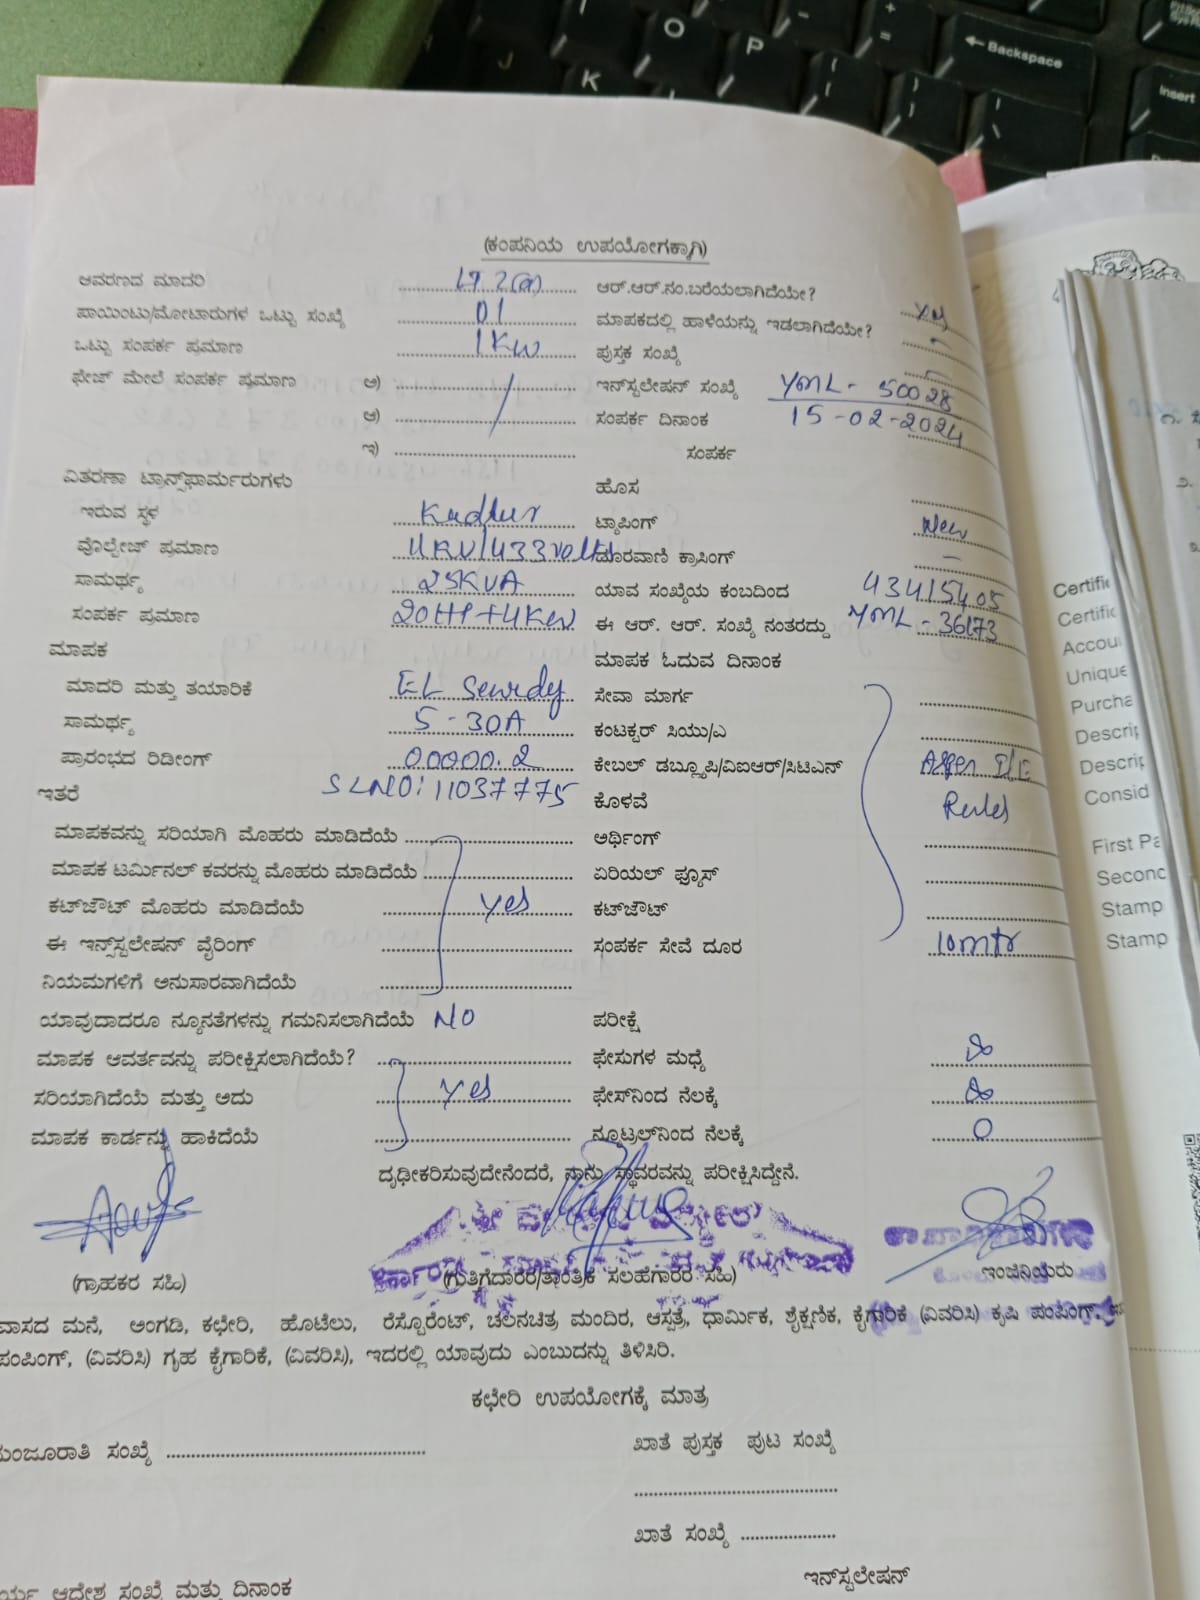 (ಕಂಪನಿಯ ಉಪಯೋಗಕ್ಕಾಗಿ)
ಆವರಣದ ಮಾದರಿ LT 2(a) ಆರ್.ಆರ್.ನಂ.ಬರೆಯಲಾಗಿದೆಯೇ? yes
ಪಾಯಿಂಟು/ಮೋಟಾರುಗಳ ಒಟ್ಟು ಸಂಖ್ಯೆ 01 ಮಾಪಕದಲ್ಲಿ ಹಾಳೆಯನ್ನು ಇಡಲಾಗಿದೆಯೇ? -
ಒಟ್ಟು ಸಂಪರ್ಕ ಪ್ರಮಾಣ 1Kw ಪುಸ್ತಕ ಸಂಖ್ಯೆ -
ಫೇಜ್ ಮೇಲೆ ಸಂಪರ್ಕ ಪ್ರಮಾಣ ಅ) ಇನ್‌ಸ್ಟಲೇಷನ್ ಸಂಖ್ಯೆ YML - 50028
ಆ) ಸಂಪರ್ಕ ದಿನಾಂಕ 15-02-2024
ಇ) ಸಂಪರ್ಕ
ವಿತರಣಾ ಟ್ರಾನ್ಸ್‌ಫಾರ್ಮರುಗಳು ಹೊಸ
ಇರುವ ಸ್ಥಳ Kadlur ಟ್ಯಾಪಿಂಗ್ New
ವೊಲ್ಟೇಜ್ ಪ್ರಮಾಣ 11KV/433volts ದೂರವಾಣಿ ಕ್ರಾಸಿಂಗ್ -
ಸಾಮರ್ಥ್ಯ 25KVA ಯಾವ ಸಂಖ್ಯೆಯ ಕಂಬದಿಂದ 43415405
ಸಂಪರ್ಕ ಪ್ರಮಾಣ 20HP+4Kw ಈ ಆರ್. ಆರ್. ಸಂಖ್ಯೆ ನಂತರದ್ದು YML - 36173
ಮಾಪಕ ಮಾಪಕ ಓದುವ ದಿನಾಂಕ
ಮಾದರಿ ಮತ್ತು ತಯಾರಿಕೆ EL ಸೇವಾ ಮಾರ್ಗ
ಸಾಮರ್ಥ್ಯ 5-30A ಕಂಟಕ್ಟರ್ ಸಿಯು/ಎ
ಪ್ರಾರಂಭದ ರಿಡೀಂಗ್ 00000.2 ಕೇಬಲ್ ಡಬ್ಲ್ಯೂಪಿ/ವಿಐಆರ್/ಸಿಟಿಎನ್ Asper I/E
SLNO: 11037775
ಇತರೆ ಕೊಳವೆ Rules
ಮಾಪಕವನ್ನು ಸರಿಯಾಗಿ ಮೊಹರು ಮಾಡಿದೆಯೆ ಅರ್ಥಿಂಗ್
ಮಾಪಕ ಟರ್ಮಿನಲ್ ಕವರನ್ನು ಮೊಹರು ಮಾಡಿದೆಯೆ ಏರಿಯಲ್ ಫ್ಯೂಸ್
ಕಟ್‌ಔಟ್ ಮೊಹರು ಮಾಡಿದೆಯೆ yes ಕಟ್‌ಔಟ್
ಈ ಇನ್‌ಸ್ಟಲೇಷನ್ ವೈರಿಂಗ್ ಸಂಪರ್ಕ ಸೇವೆ ದೂರ 10mtr
ನಿಯಮಗಳಿಗೆ ಅನುಸಾರವಾಗಿದೆಯೆ
ಯಾವುದಾದರೂ ನ್ಯೂನತೆಗಳನ್ನು ಗಮನಿಸಲಾಗಿದೆಯೆ NO ಪರೀಕ್ಷೆ
ಮಾಪಕ ಆವರ್ತವನ್ನು ಪರೀಕ್ಷಿಸಲಾಗಿದೆಯೆ? ಫೇಸುಗಳ ಮಧ್ಯೆ ∞
ಸರಿಯಾಗಿದೆಯೆ ಮತ್ತು ಅದು yes ಫೇಸ್‌ನಿಂದ ನೆಲಕ್ಕೆ ∞
ಮಾಪಕ ಕಾರ್ಡನ್ನು ಹಾಕಿದೆಯೆ ನ್ಯೂಟ್ರಲ್‌ನಿಂದ ನೆಲಕ್ಕೆ 0
ದೃಢೀಕರಿಸುವುದೇನೆಂದರೆ, ನಾನು ಸ್ಥಾವರವನ್ನು ಪರೀಕ್ಷಿಸಿದ್ದೇನೆ.
(ಗ್ರಾಹಕರ ಸಹಿ) (ಗುತ್ತಿಗೆದಾರರ/ತಾಂತ್ರಿಕ ಸಲಹೆಗಾರರ ಸಹಿ) ಇಂಜಿನಿಯರು
ವಾಸದ ಮನೆ, ಅಂಗಡಿ, ಕಛೇರಿ, ಹೊಟೆಲು, ರೆಸ್ಟೊರೆಂಟ್, ಚಲನಚಿತ್ರ ಮಂದಿರ, ಆಸ್ಪತ್ರೆ, ಧಾರ್ಮಿಕ, ಶೈಕ್ಷಣಿಕ, ಕೈಗಾರಿಕೆ (ವಿವರಿಸಿ) ಕೃಷಿ ಪಂಪಿಂಗ್,
ಪಂಪಿಂಗ್, (ವಿವರಿಸಿ) ಗೃಹ ಕೈಗಾರಿಕೆ, (ವಿವರಿಸಿ), ಇದರಲ್ಲಿ ಯಾವುದು ಎಂಬುದನ್ನು ತಿಳಿಸಿರಿ.
ಕಛೇರಿ ಉಪಯೋಗಕ್ಕೆ ಮಾತ್ರ
ಮಂಜೂರಾತಿ ಸಂಖ್ಯೆ ಖಾತೆ ಪುಸ್ತಕ ಪುಟ ಸಂಖ್ಯೆ
ಖಾತೆ ಸಂಖ್ಯೆ
ಇನ್‌ಸ್ಟಲೇಷನ್
ಆದೇಶ ಸಂಖ್ಯೆ ಮತ್ತು ದಿನಾಂಕ
Certific
Certific
Accou
Unique
Purcha
Descrip
Descrip
Consid
First Pa
Second
Stamp
Stamp
O
P
J
K
Backspace
Insert